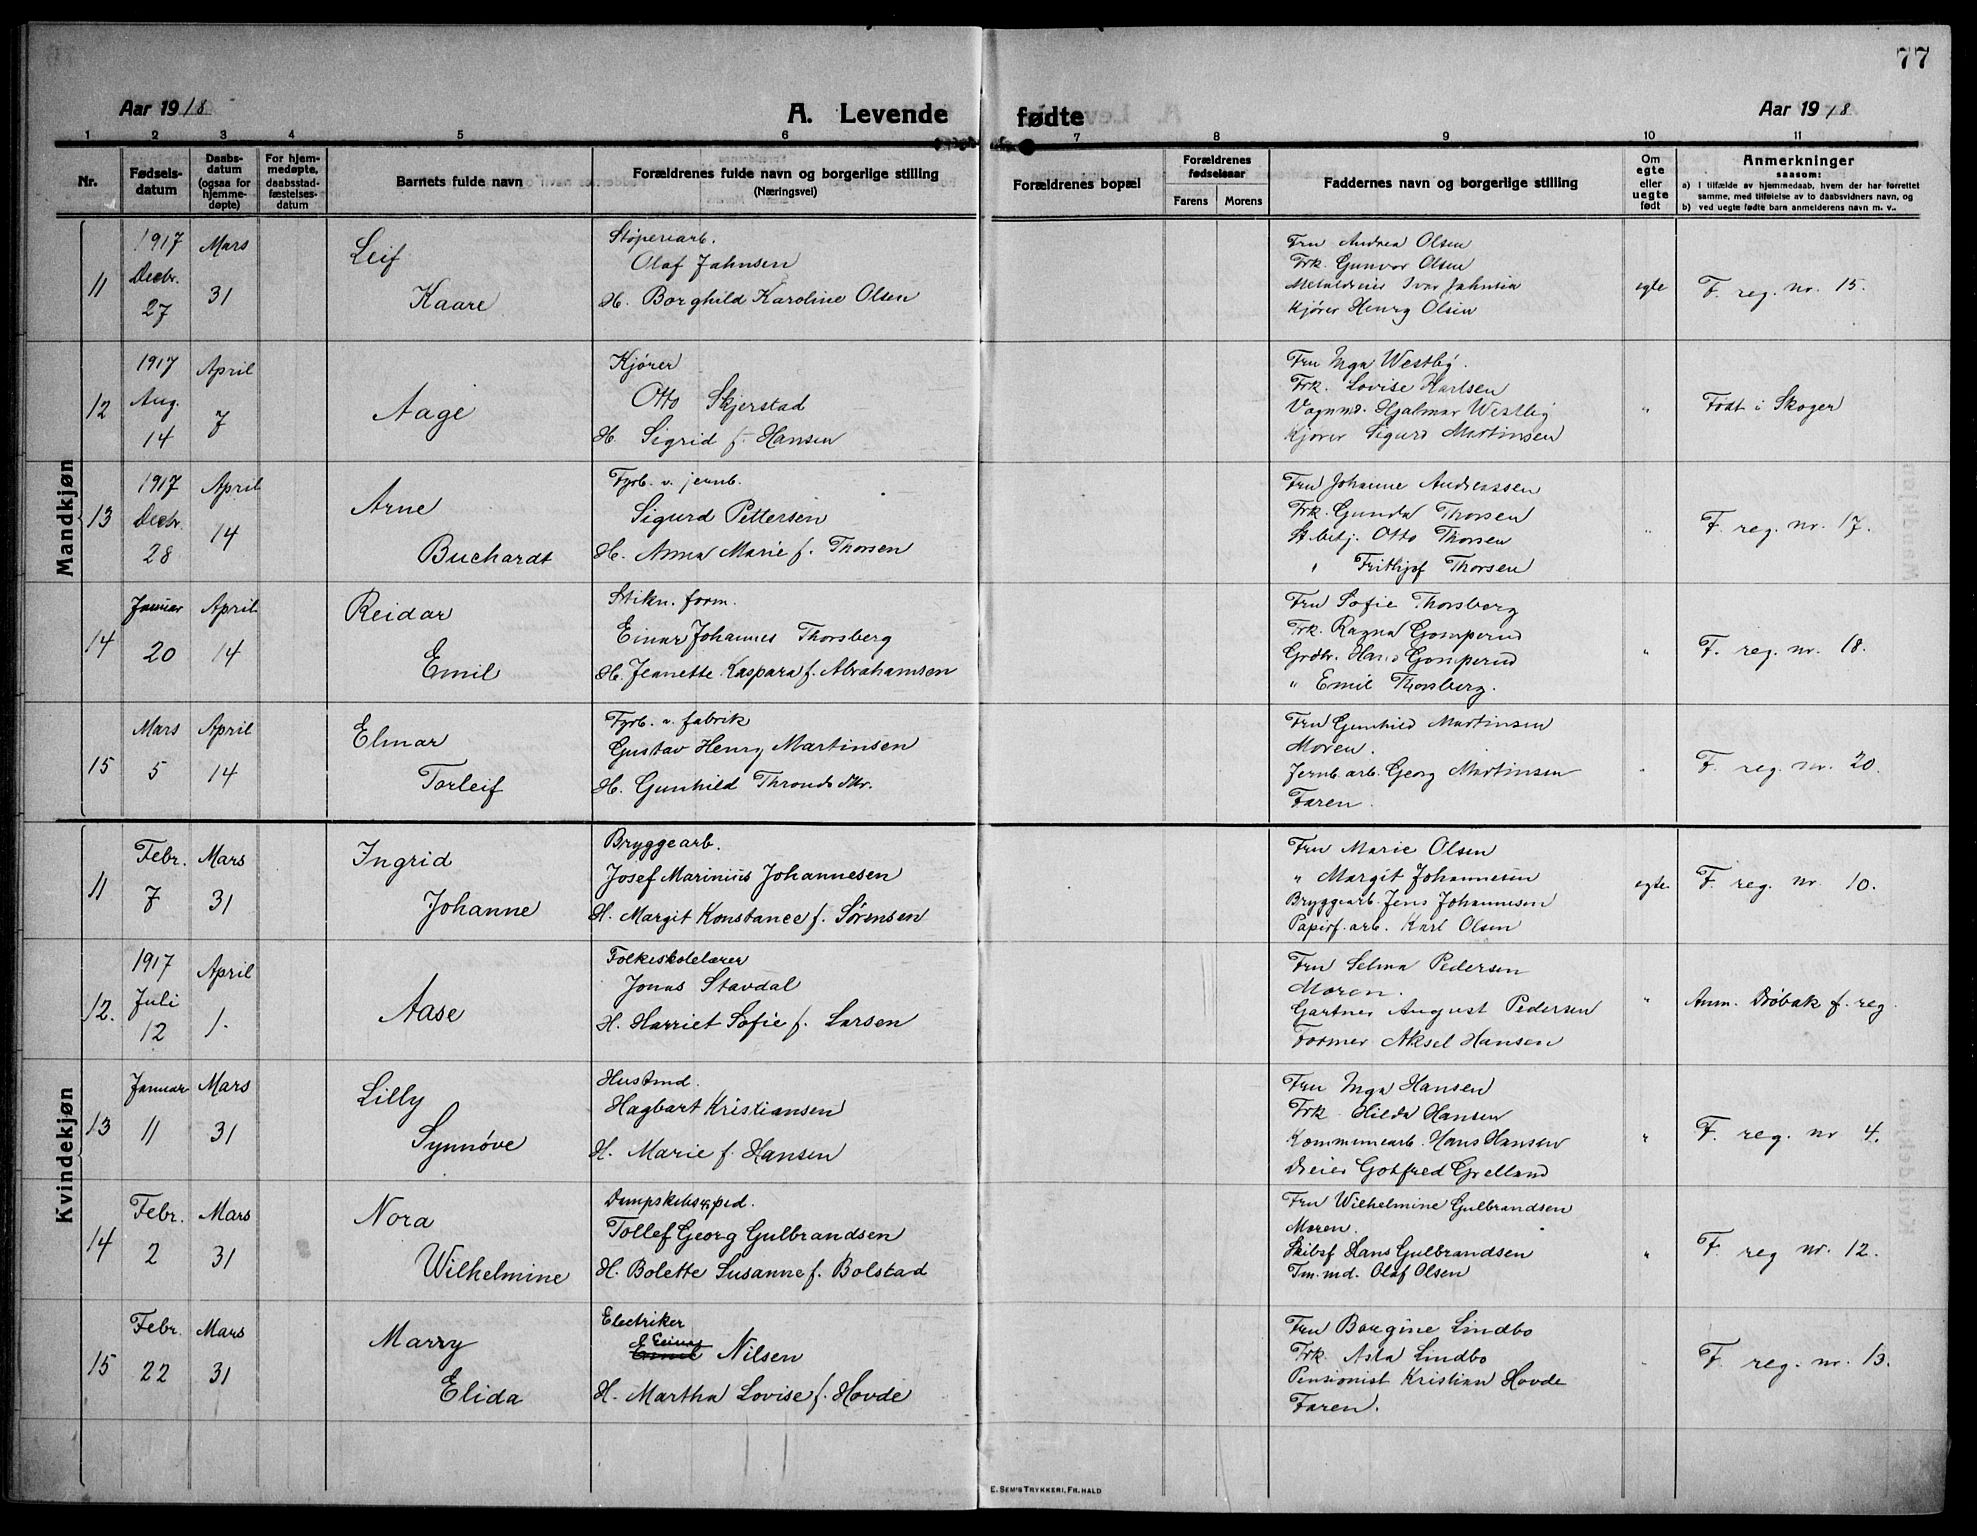 77
Aar 1918
A. Levende fødte
Aar 1918
1 2 3 4 5 6 7 8 9 10 11
Nr.
Fødsels-
datum
Daabs-
datum
(ogsaa for
hjemme-
døpte)
For hjem-
medøpte,
daabsstad-
fæstelses-
datum
Barnets fulde navn
Forældrenes fulde navn og borgerlige stilling
(Næringsvei)
Forældrenes bopæl
Forældrenes
fødselsaar
Farens Morens
Faddernes navn og borgerlige stilling
Om
egte
eller
uegte
født
Anmerkninger
saasom:
a) I tilfælde av hjemmedaab, hvem der har forrettet
samme, med tilføielse av to daabsvidners navn, og
b) ved uegte fødte barn anmelderens navn m. v..
Mandkjøn
11
1917
Decbr.
27
Mars
31
Leif
Kaare
Støperiarb.
Olaf Jahnsen
H. Borghild Karoline Olsen
Fru Andrea Olsen
Frk. Gunvor Olsen
Ivar Jahnsen
Kjører Henry Olsen
egte
F. reg. nr. 15.
12
1917
Aug.
14
April
7
Aage
Kjører
Otto Skjerstad
H. Sigrid f. Hansen
Fru Inga Westby.
Frk. Lovise Karlsen
Vognmd. Hjalmar Westby
Kjører Sigurd Martinsen
"
Født i Skoger
13
1917
Decbr.
28
April
14
Arne
Buchardt
Fyrb. v. jernb.
Sigurd Pettersen
H. Anna Marie f. Thorsen
Fru Johanne Andreassen
Frk. Gunda Thorsen
St.betj. Otto Thorsen
" Frithjof Thorsen
"
F. reg. nr. 17.
14
Januar
20
April
14
Reidar
Emil
Stikn. form.
Einar Johannes Thorsberg
H. Jeanette Kaspara f. Abrahamsen
Fru Sofie Thorsberg
Frk. Ragna Gomperud
Grdbr. Hans Gomperud
" Emil Thorsberg.
"
F. reg. nr. 18.
15
Mars
5
April
14
Elmar
Torleif
Fyrb. v. fabrik
Gustav Henry Martinsen
H. Gunhild Thronds dtr.
Fru Gunhild Martinsen
Moren.
Jernb. arb. Georg Martinsen
Faren.
"
F. reg. nr. 20.
Kvindekjøn
11
Febr.
7
Mars
31
Ingrid
Johanne
Bryggearb.
Josef Marinius Johannesen
H. Margit Konstance f. Sørensen
Fru Marie Olsen
" Margit Johannesen
Bryggearb. Jens Johannesen
Papirf. arb. Karl Olsen
egte
F. reg. nr. 10.
12.
1917
Juli
12
April
1.
Aase
Folkeskolelærer
Jonas Stavdal
H. Harriet Sofie f. Larsen
Fru Selma Pedersen
Moren.
Gartner August Pedersen
Former Aksel Hansen
"
Anm. Drøbak f. reg.
13
Januar
11
Mars
31
Lilly
Synnøve
Hustmd.
Hagbart Kristiansen
H. Marie f. Hansen
Fru Inga Hansen
Frk. Hilda Hansen
Kommunearb. Hans Hansen
Dreier Gotfred Grelland
"
F. reg. nr 4.
14
Febr.
2
Mars
31
Nora
Wilhelmine
Dampskibsexped.
Tollef Georg Gulbrandsen
H. Bolette Susanne f. Bolstad
Fru Wilhelmine Gulbrandsen
Moren.
Skibsf Hans Gulbrandsen
Tm.md. Olaf Olsen
"
F. reg nr. 12.
15
Febr.
22
Mars
31
Marry
Elida
Electriker
Einar Nilsen
H. Martha Lovise f. Hovde
Fru Borgine Lindbo
Frk. Asta Lindbo
Pensionist Kristian Hovde
Faren.
"
F. reg. nr. 13.
E. SEM'S TRYKKERI, FR.HALD